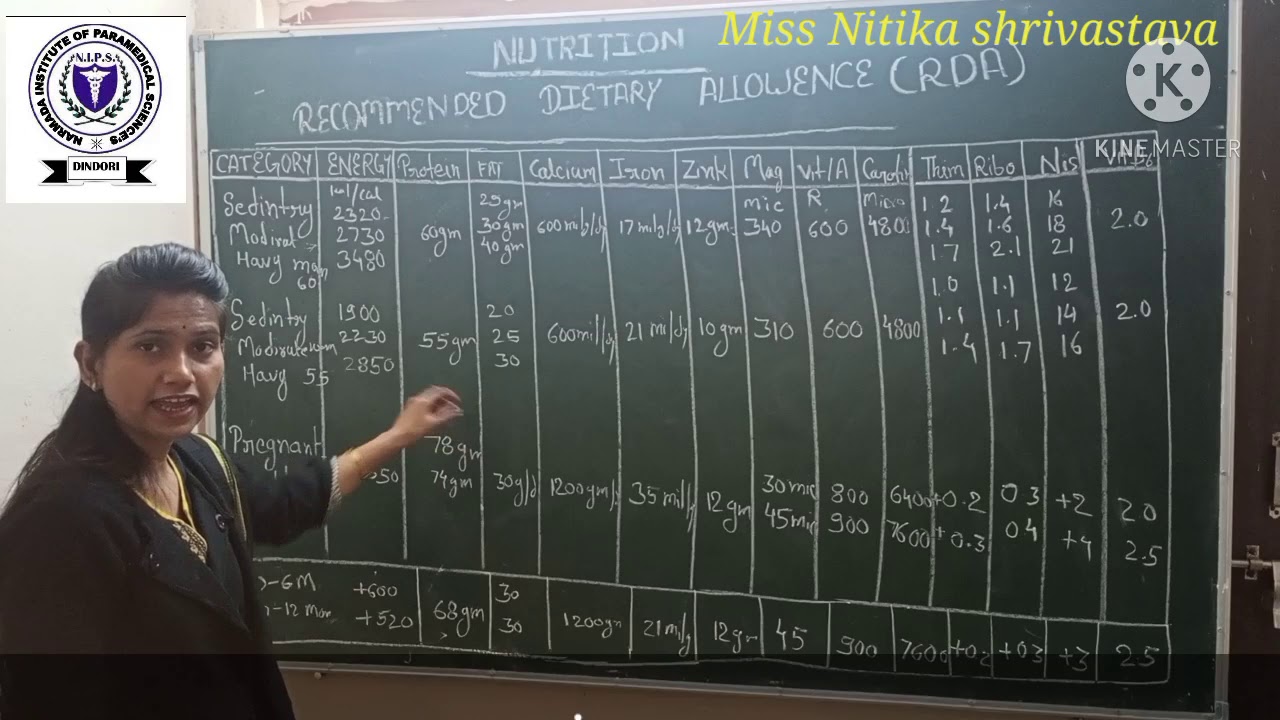 Miss Nitika shrivastava
NARMADA INSTITUTE OF PARAMEDICAL SCIENCE'S
N.I.P.S.
DINDORI
K
KINEMASTER
NUTRITION
RECOMMENDED DIETARY ALLOWENCE (RDA)
CATEGORY ENERGY Protein FAT Calcium Iron Zink Mag Vit/A Thim Ribo Nis
mic R. 1.2 1.4 16
Sedintry 2320 25gm
Modirat 2730 60gm 30gm 17 12gm 340 600 4800 1.4 1.6 18 2.0
Havy man 3480 40gm 1.7 2.1 21
60
1.0 1.1 12
Sedintry 1900 20 1.1 1.1 14 2.0
2230 55gm 25 21 10gm 310 600 4800
Havy 55 2850 30 1.4 1.7 16
Pregnant 78gm
50 74gm 30g/d 1200gm/ 35 12gm 30mic 800 6400 +0.2 03 +2 20
45mic 900 7600 +0.3 04 +4 2.5
-6M +600 30
-12 Mon +520 68gm 30 1200gm 21 12gm 45 900 7600 +0.2 +03 +3 2.5